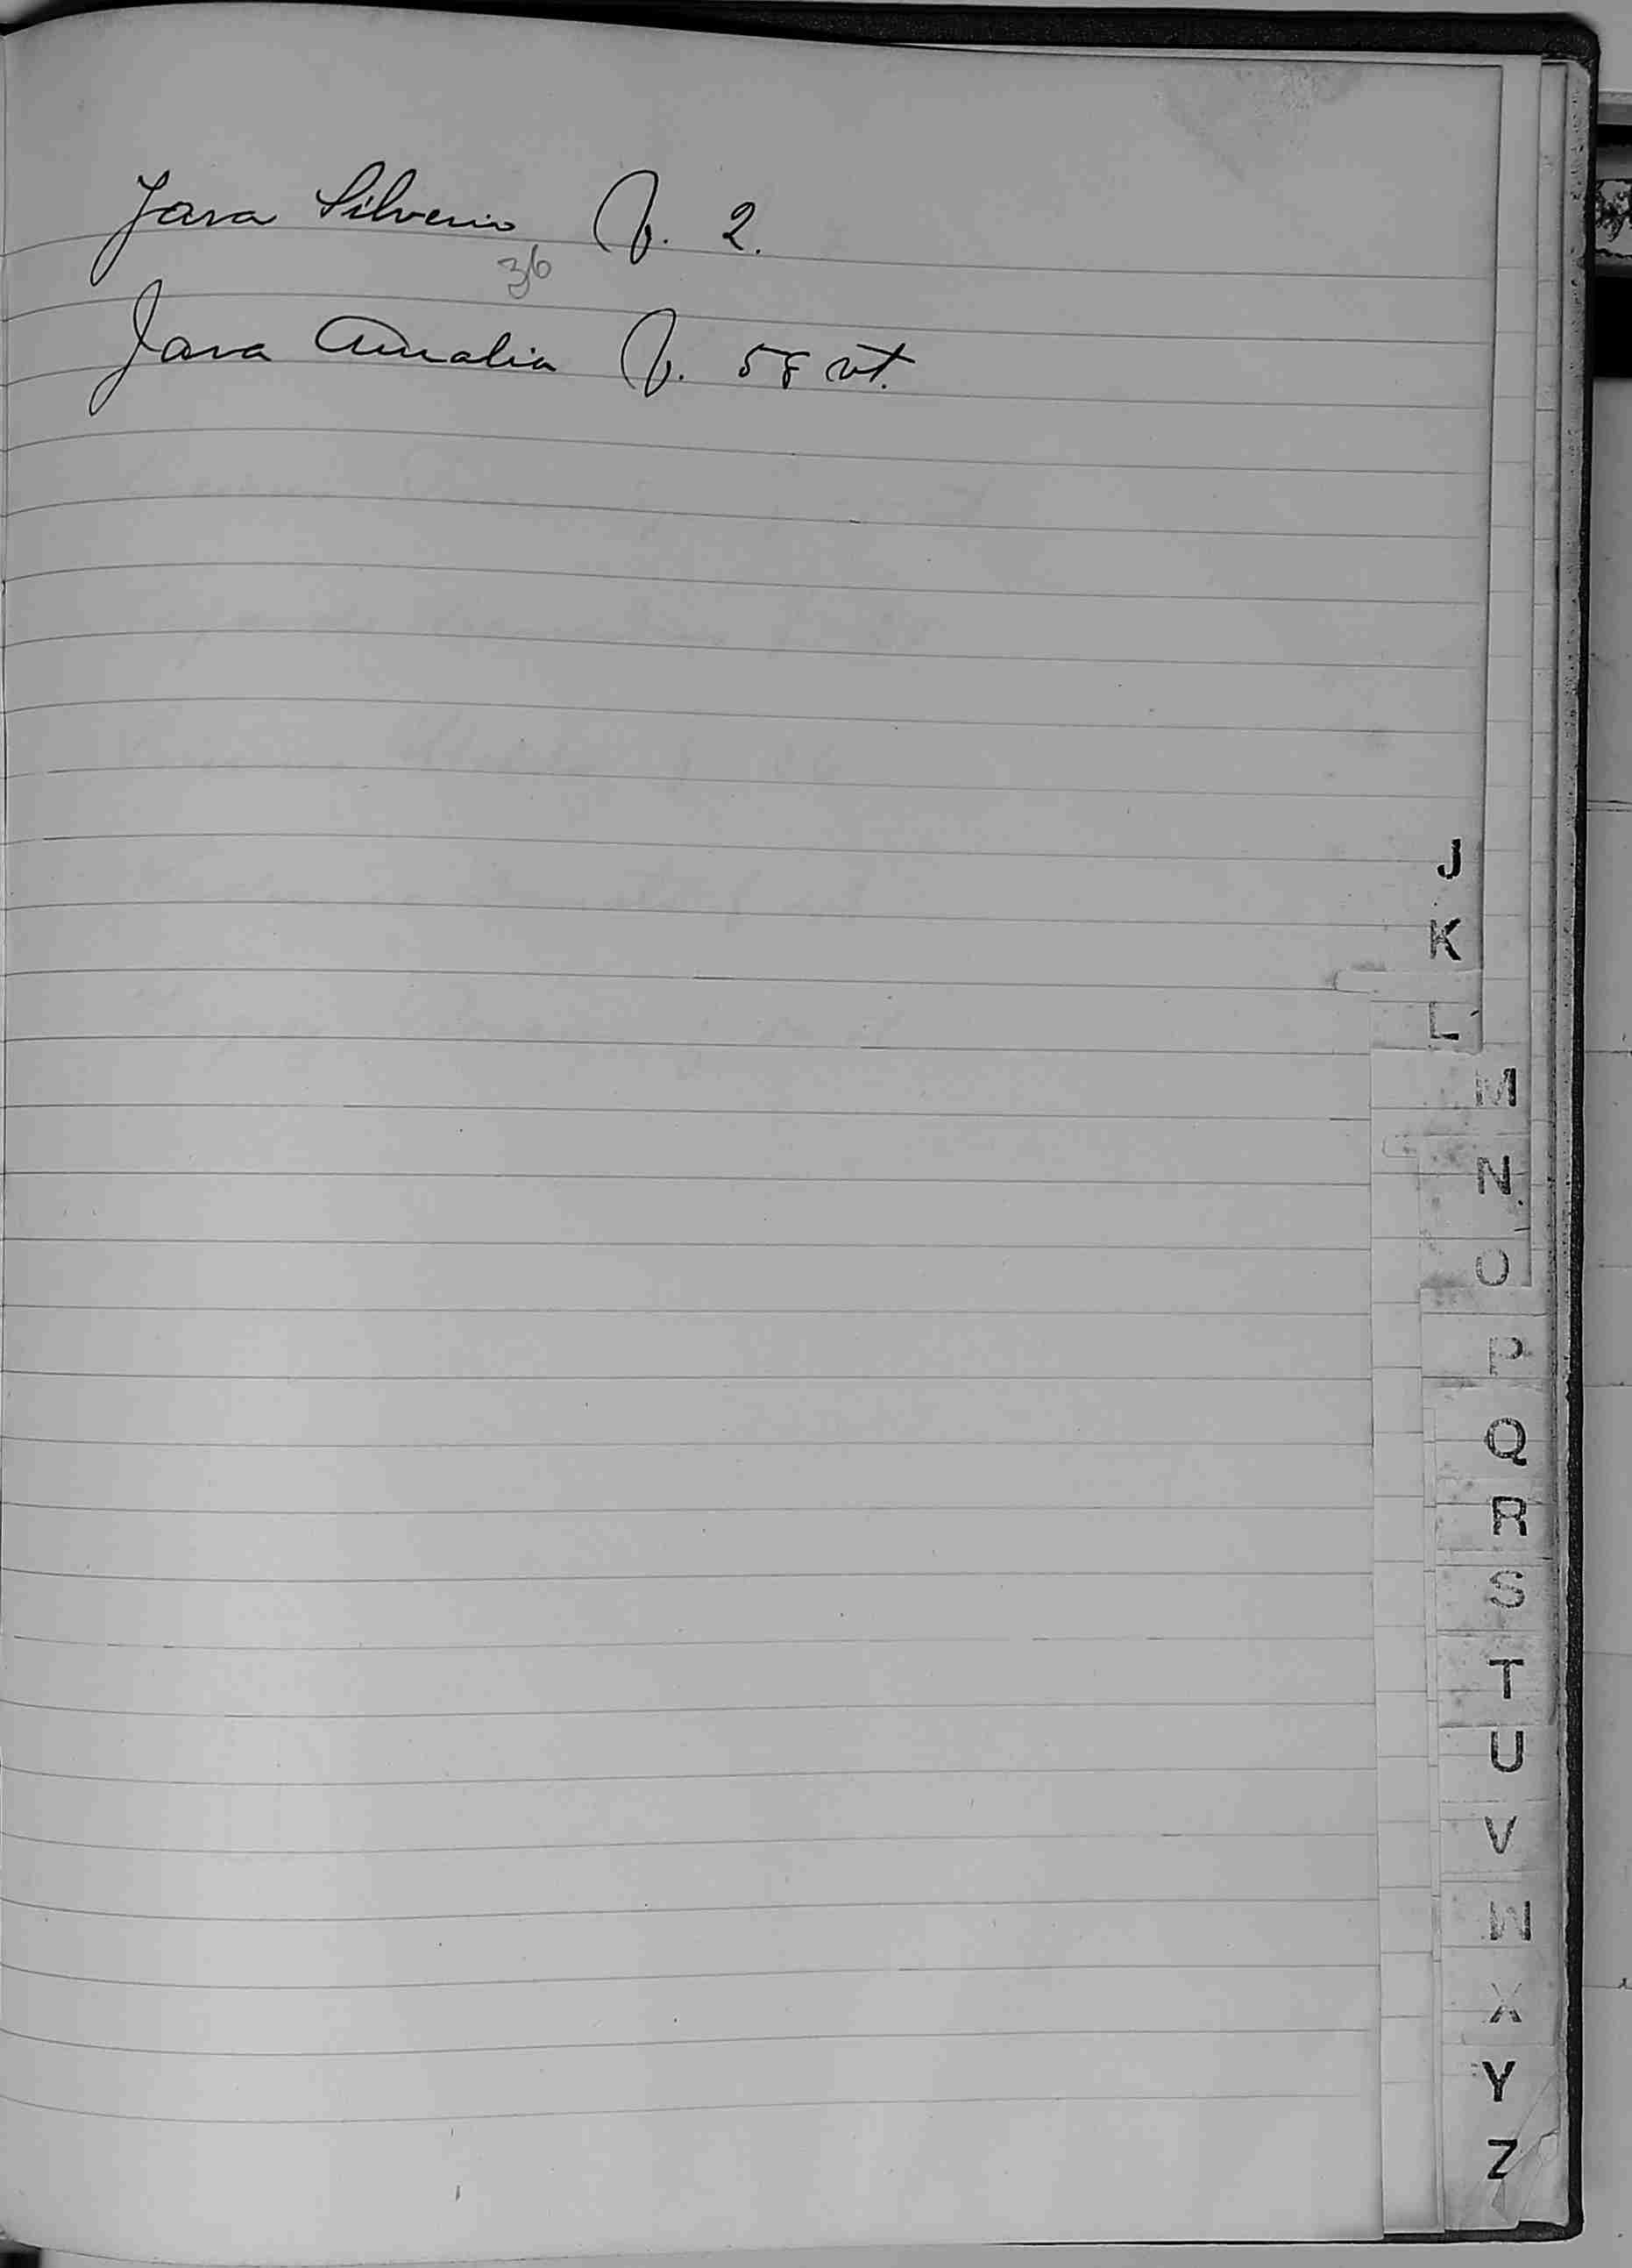 Jara Silverio f. 2.
36
Jara Amalia f. 58 vt.
J
K
L
M
N
O
P
Q
R
S
T
U
V
W
X
Y
Z